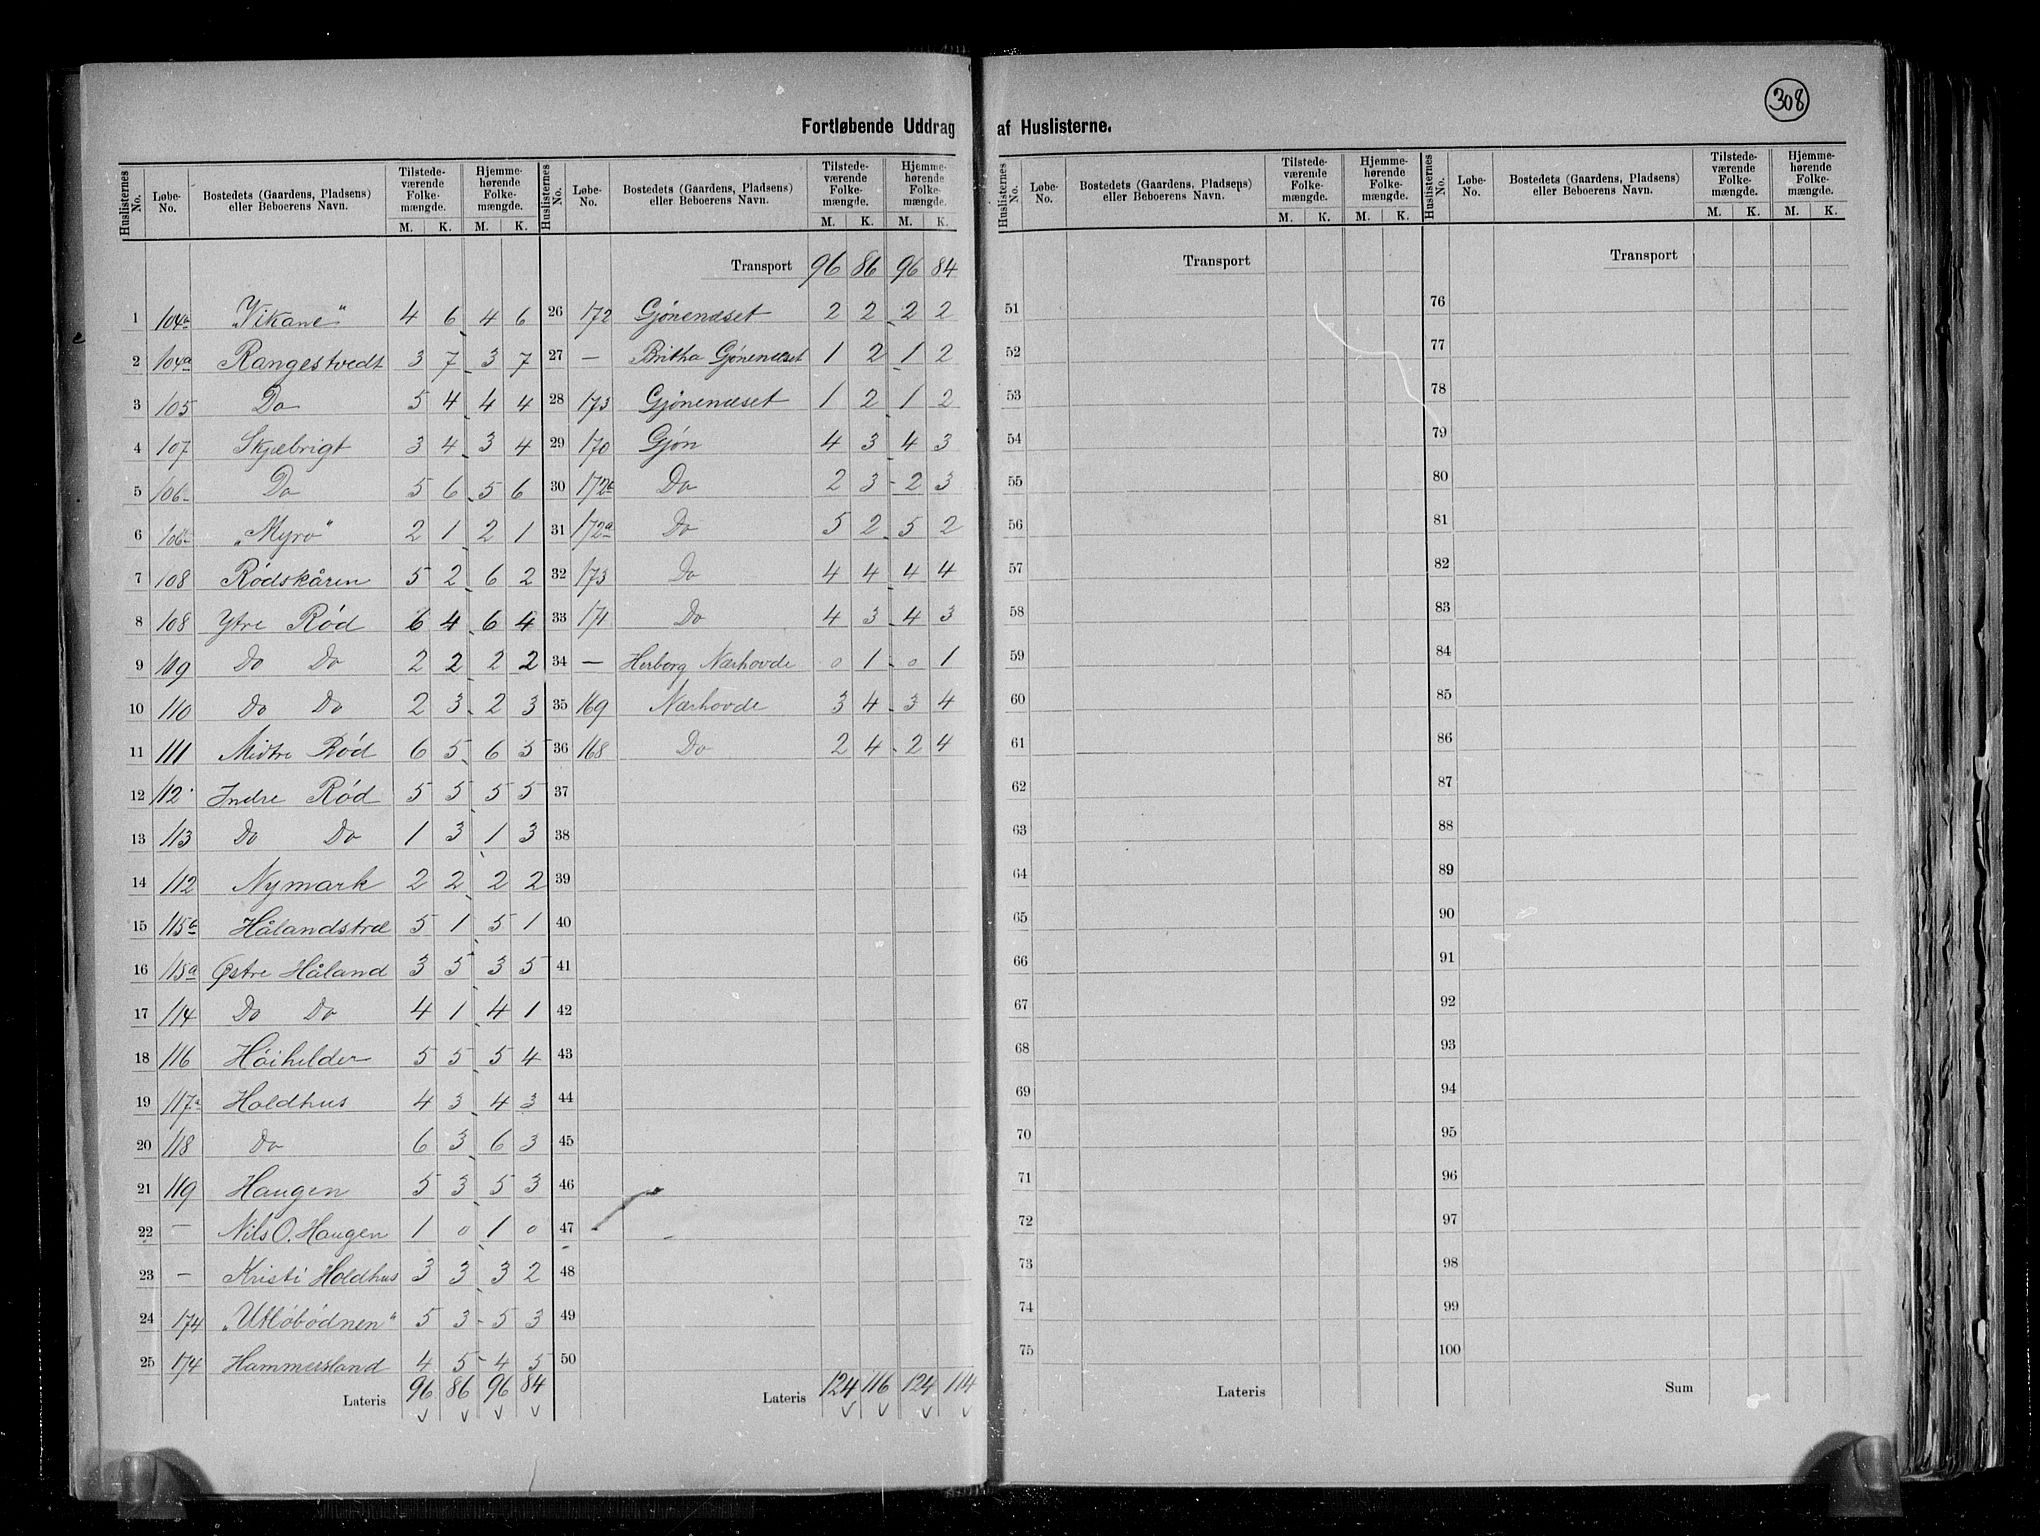 308
Fortløbende Uddrag af Huslisterne.
Huslisternes No. | Løbe-No. | Bostedets (Gaarden, Pladsen) eller Beboerens Navn. | Tilstedeværende Folkemængde. M. K. | Hjemmehørende Folkemængde. M. K.
1 104a „Vikane“ 4 6 4 6
2 104a Rangestvedt 3 7 3 7
3 105 Do 5 4 4 4
4 107 Skjæbrigt 3 4 3 4
5 106 Do 5 6 5 6
6 106 „Myro“ 2 1 2 1
7 108 Rødskåren 5 2 6 2
8 108 Ytre Rød 6 4 6 4
9 109 Do Do 2 2 2 2
10 110 Do Do 2 3 2 3
11 111 Midtre Rød 6 5 6 5
12 112 Indre Rød 5 5 5 5
13 113 Do Do 1 3 1 3
14 112 Nymark 2 2 2 2
15 115a Hålandstræ 5 1 5 1
16 115a Østre Håland 3 5 3 5
17 114 Do Do 4 1 4 1
18 116 Høihilder 5 5 5 4
19 117a Holdhus 4 3 4 3
20 118 Do 6 3 6 3
21 119 Haugen 5 3 5 3
22 — Nils O. Haugen 1 0 1 0
23 — Kristi Holdhus 3 3 3 2
24 174 „Utløbødnen“ 5 3 5 3
25 174 Hammersland 4 5 4 5
Lateris 96 86 96 84
Huslisternes No. | Løbe-No. | Bostedets (Gaardens, Pladsens) eller Beboerens Navn. | Tilstedeværende Folkemængde. M. K. | Hjemmehørende Folkemængde. M. K.
Transport 96 86 96 84
26 172 Gjønenæset 2 2 2 2
27 — Britha Gjønenæset 1 2 1 2
28 173 Gjønenæset 1 2 1 2
29 170 Gjøn 4 3 4 3
30 172a Do 2 3 2 3
31 172a Do 5 2 5 2
32 173 Do 4 4 4 4
33 171 Do 4 3 4 3
34 — Herborg Nærhovde 0 1 0 1
35 169 Nærhovde 3 4 3 4
36 168 Do 2 4 2 4
37
38
39
40
41
42
43
44
45
46
47
48
49
50
Lateris 124 116 124 114
Huslisternes No. | Løbe-No. | Bostedets (Gaardens, Pladsens) eller Beboerens Navn. | Tilstedeværende Folkemængde. M. K. | Hjemmehørende Folkemængde. M. K.
Transport
51
52
53
54
55
56
57
58
59
60
61
62
63
64
65
66
67
68
69
70
71
72
73
74
75
Lateris
Huslisternes No. | Løbe-No. | Bostedets (Gaardens, Pladsens) eller Beboerens Navn. | Tilstedeværende Folkemængde. M. K. | Hjemmehørende Folkemængde. M. K.
Transport
76
77
78
79
80
81
82
83
84
85
86
87
88
89
90
91
92
93
94
95
96
97
98
99
100
Sum